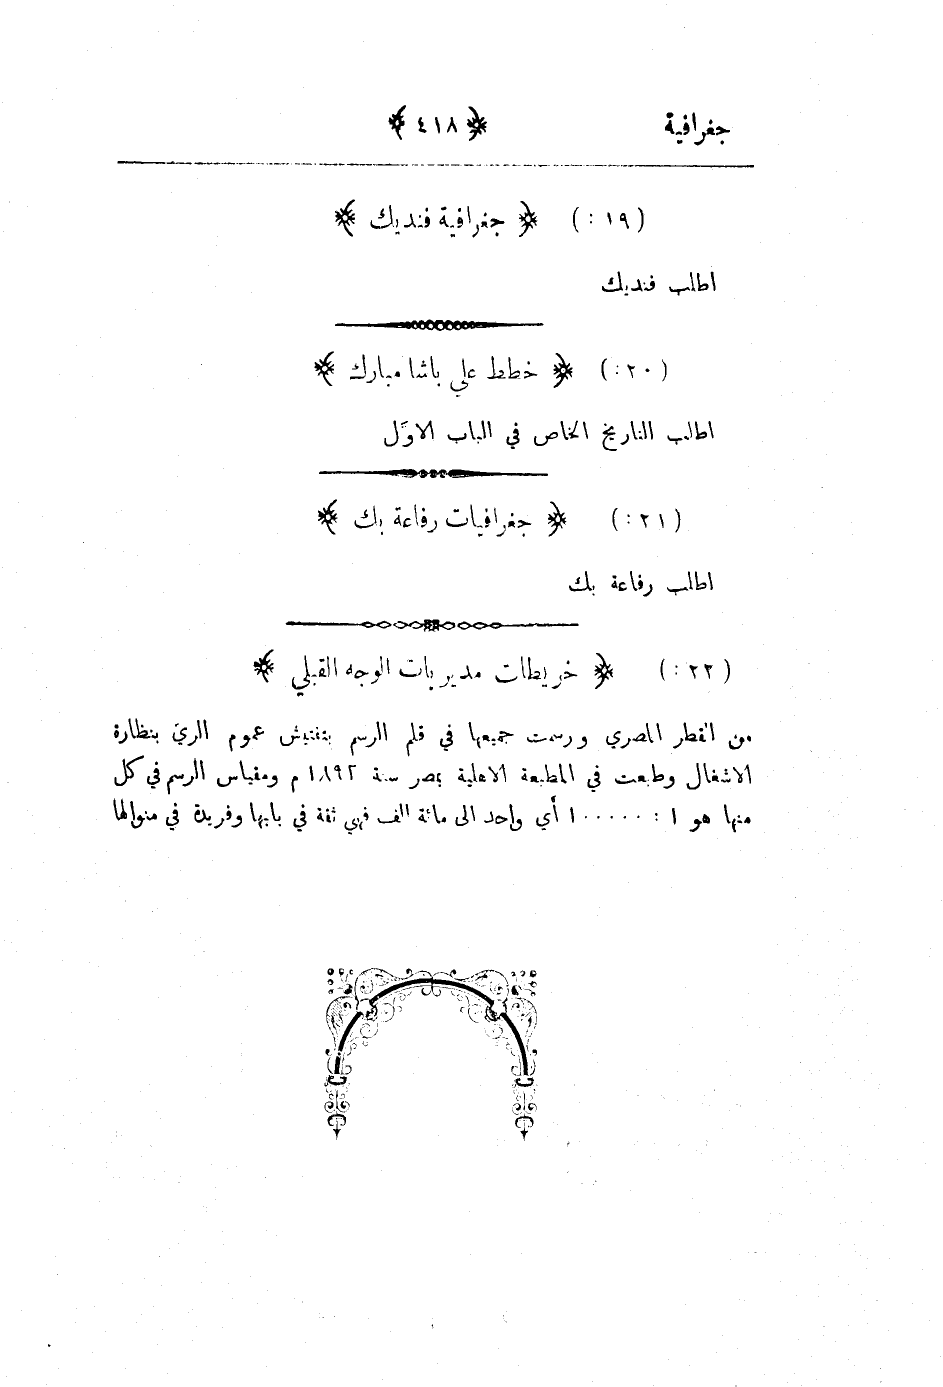 جغرافية ﴿ ٤١٨ ﴾
(١٩:) ﴿ جغرافية فنديك ﴾
اطلب فنديك
(٢٠:) ﴿ خطط علي باشا مبارك ﴾
اطلب التاريخ الخاص في الباب الاوّل
(٢١:) ﴿ جغرافيات رفاعة بك ﴾
اطلب رفاعة بك
(٢٢:) ﴿ خريطات مديريات الوجه القبلي ﴾
من القطر المصري ورسمت جميعها في قلم الرسم بتفتيش عموم الريّ بنظارة
الاشغال وطبعت في المطبعة الاهلية بمصر سنة ١٨٩٢ م ومقياس الرسم في كل
منها هو ١ : ١٠٠٠٠٠ أي واحد الى مائة الف فهي ثقة في بابها وفريدة في منوالها